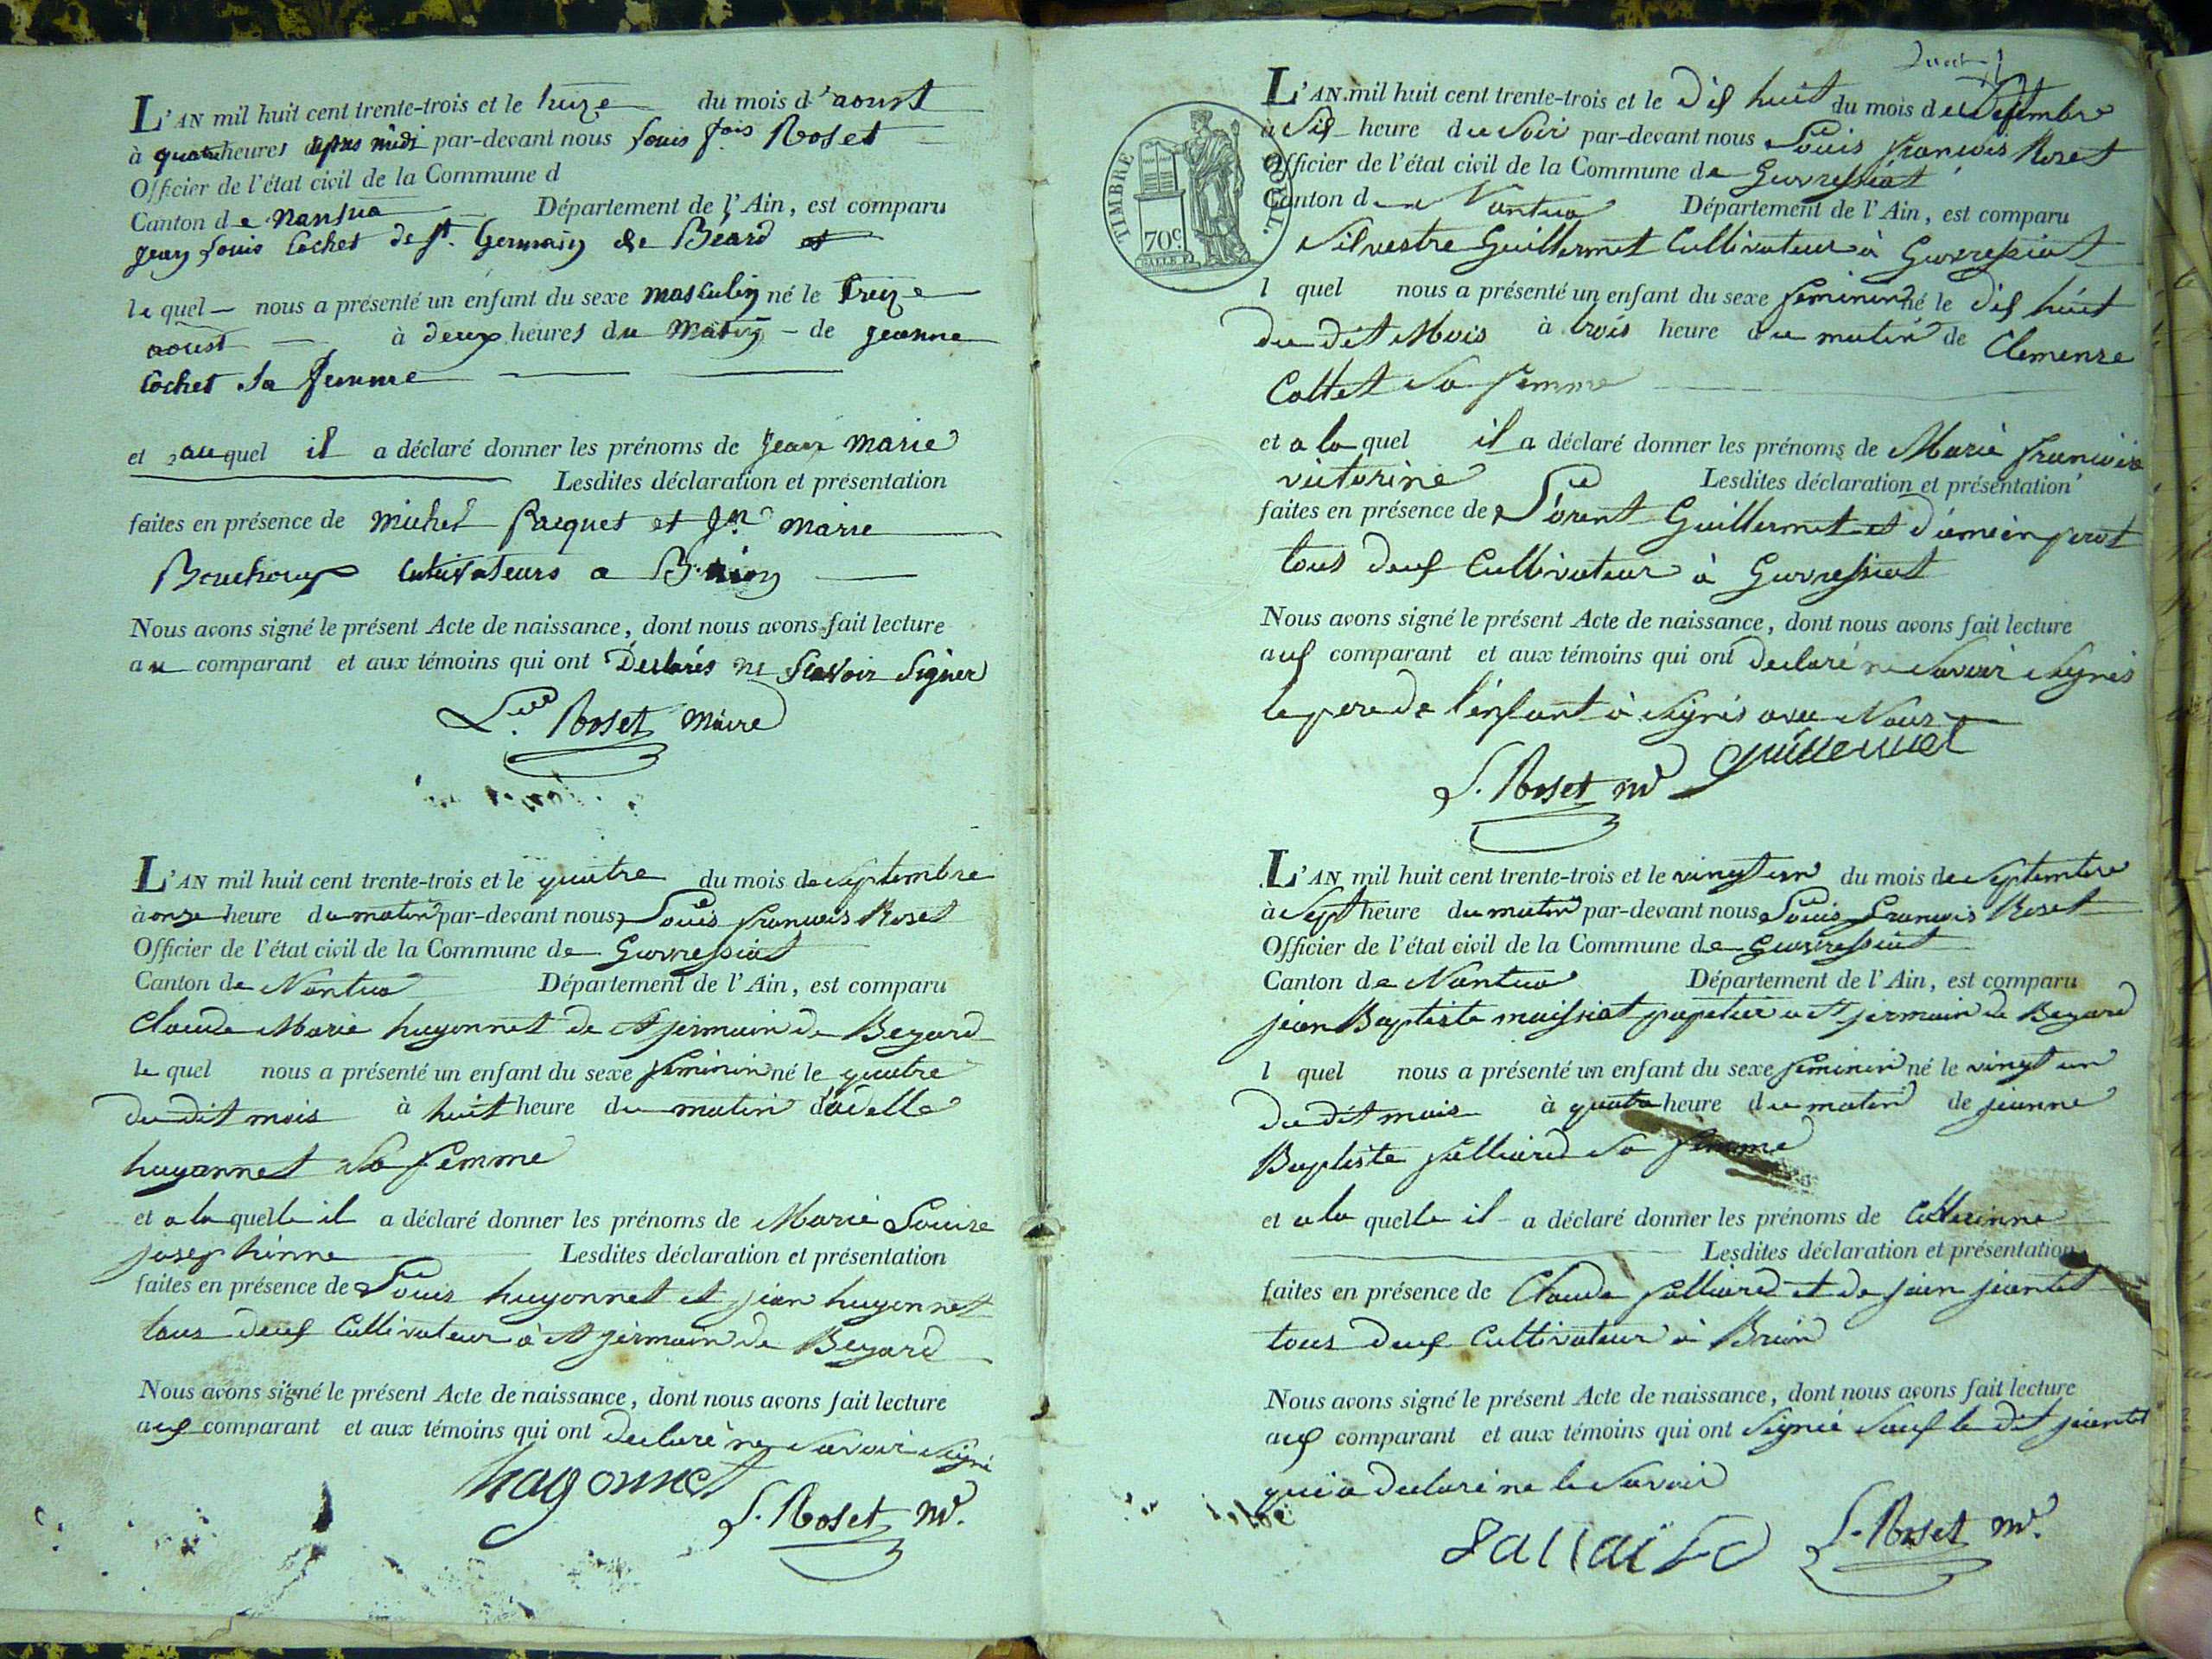 L'AN mil huit cent trente-trois et le treize du mois d'aoust
à quatre heures apres midi par-devant nous Louis f.ois Roset
Officier de l'état civil de la Commune d
Canton de Nantua Département de l'Ain, est comparu
Jean Louis Cochet de St. Germain de Béard
le quel nous a présenté un enfant du sexe masculin né le treize
aoust à deux heures du matin de jeanne
Cochet sa femme
et auquel il a déclaré donner les prénoms de Jean marie
Lesdites déclaration et présentation
faites en présence de michel Pacquet et Jn marie
Bouchoux Cultivateurs a Brion
Nous avons signé le présent Acte de naissance, dont nous avons fait lecture
au comparant et aux témoins qui ont Déclarés ne Scavoir Signer
L. Roset maire
L'AN mil huit cent trente-trois et le quatre du mois de Septembre
à onze heure du matin par-devant nous Louis francois Roset
Officier de l'état civil de la Commune de Gevressiat
Canton de Nantua Département de l'Ain, est comparu
Claude Marie hugonnet de St germain de Begard
le quel nous a présenté un enfant du sexe feminin né le quatre
du dit mois à huit heure du matin d'adelle
hugonnet Sa femme
et a la quelle il a déclaré donner les prénoms de Marie Louise
josephinne Lesdites déclaration et présentation
faites en présence de Louis hugonnet et jean hugonnet
tous deux Cultivateur à St germain de Begard
Nous avons signé le présent Acte de naissance, dont nous avons fait lecture
aux comparant et aux témoins qui ont declaré ne Savoir Signé
hugonnet
L. Roset m.
TIMBRE ROYAL.
70c
L'AN mil huit cent trente-trois et le dix huit du mois de Septembre
à Six heure du Soir par-devant nous Louis francois Roset
Officier de l'état civil de la Commune de Gevressiat
Canton de Nantua Département de l'Ain, est comparu
Silvestre Guillermet Cultivateur à Gevressiat
l quel nous a présenté un enfant du sexe feminin né le dix huit
du dit Mois à trois heure du matin de Clemense
Collet Sa femme
et a la quel il a déclaré donner les prénoms de Marie francoise
victorine Lesdites déclaration et présentation
faites en présence de Lorent Guillermet et perot
tous deux Cultivateur à Gevressiat
Nous avons signé le présent Acte de naissance, dont nous avons fait lecture
aux comparant et aux témoins qui ont declaré ne Savoir Signés
le pere de l'enfant à Signés avec Nous
Guillermet
L. Roset m
L'AN mil huit cent trente-trois et le vingt un du mois de Septembre
à Sept heure du matin par-devant nous Louis francois Roset
Officier de l'état civil de la Commune de Gevressiat
Canton de Nantua Département de l'Ain, est comparu
jean Baptiste maissiat papetier a St germain de Begard
l quel nous a présenté un enfant du sexe feminin né le vingt un
du dit mois à quatre heure du matin de jeanne
Baptiste jalliard Sa femme
et a la quelle il a déclaré donner les prénoms de Catherinne
Lesdites déclaration et présentation
faites en présence de Claude jalliard et de jean jeantet
tous deux Cultivateur à Brion
Nous avons signé le présent Acte de naissance, dont nous avons fait lecture
aux comparant et aux témoins qui ont Signée Sauf le dit jeantet
qui a declaré ne le Savoir
L. Roset m.